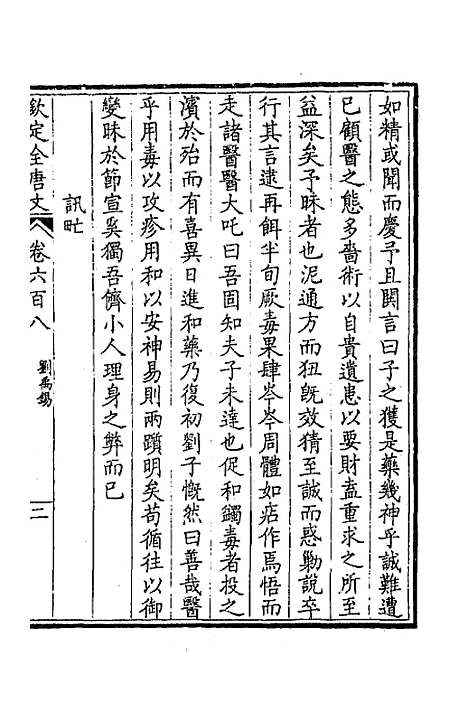 如精或聞而慶予且関言曰子之獲是藥幾神乎誠難遭
已顧醫之態多嗇術以自貴遺患以要財盍重求之所至
益深矣予昧者也泥通方而狃既效猜至誠而惑勦說卒
行其言逮再餌半旬厥毒果肆岑岑周體如痁作焉悟而
走諸醫醫大吒曰吾固知夫子未達也促和蠲毒者投之
濱於殆而有喜異日進和藥乃復初劉子慨然曰善哉醫
乎用毒以攻疹用和以安神易則兩躓明矣苟循往以御
變昧於節宣奚獨吾儕小人理身之弊而已
訊甿
欽定全唐文
卷六百八
劉禹錫
二